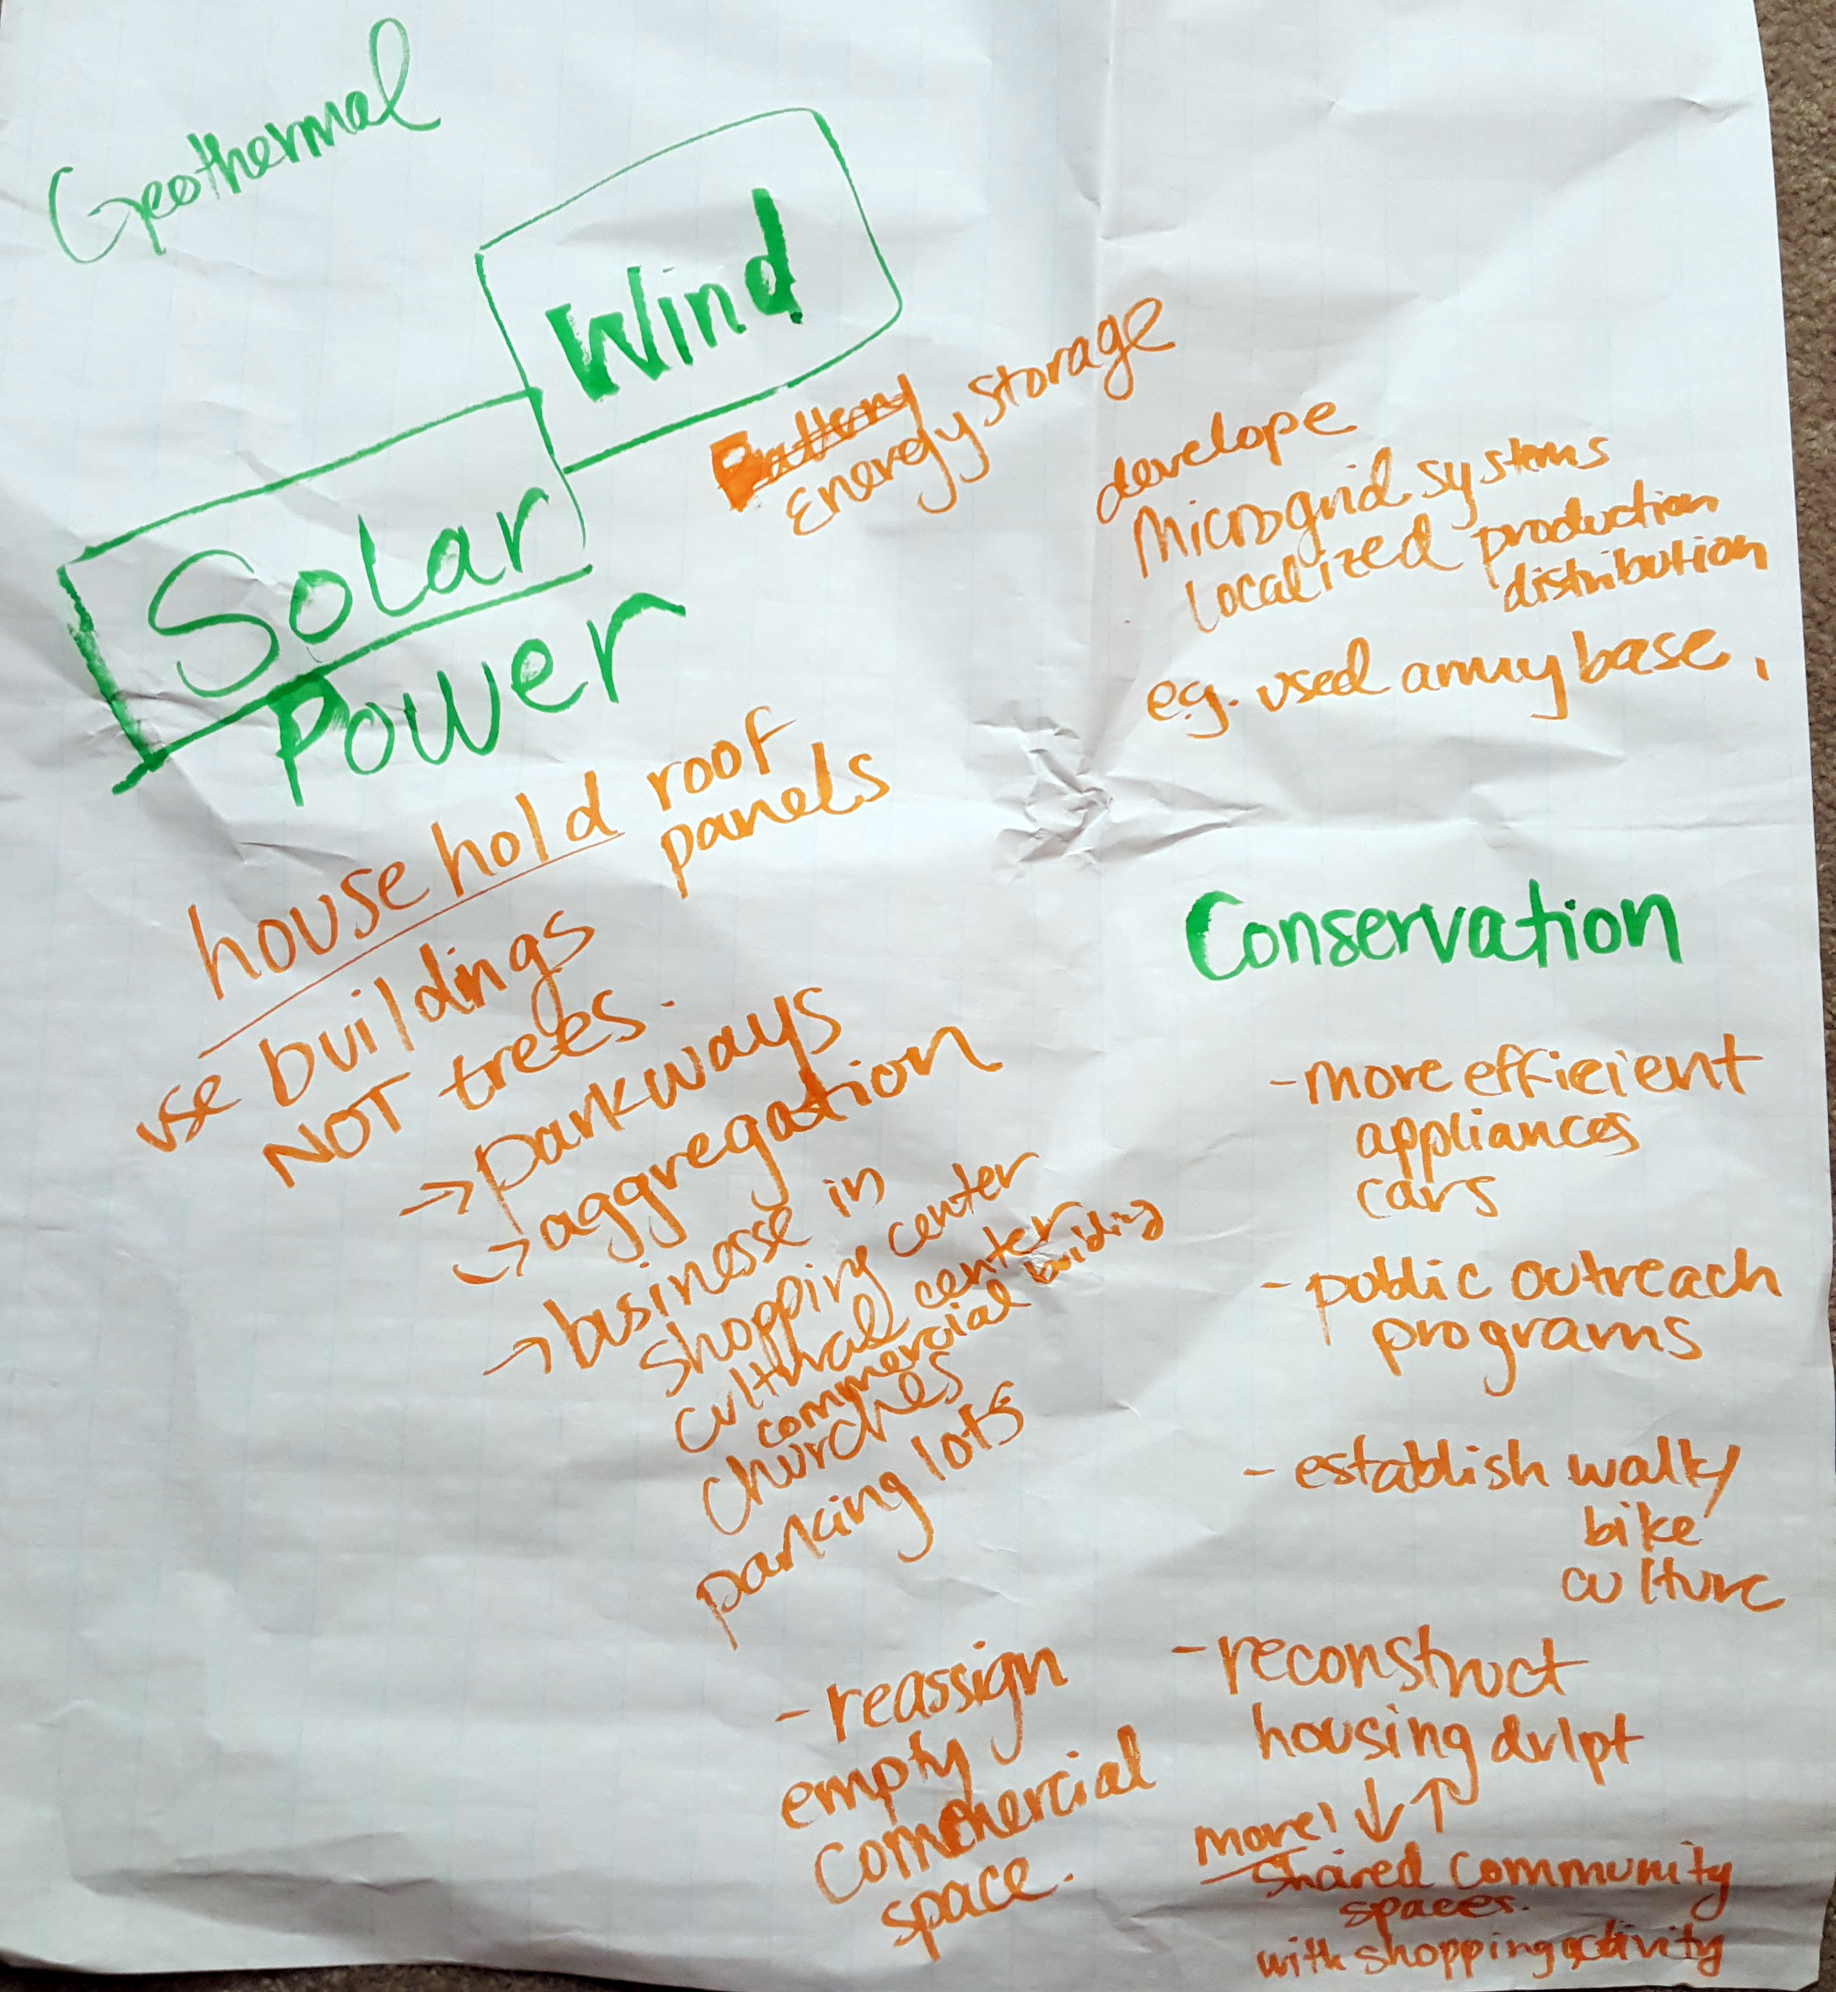 Geothermal
Wind
Solar
Power
Battery
Energy storage
develope
Microgrid systems
Localized production
distribution
e.g. used army base,
household roof
panels
use buildings
NOT trees.
→ parkways
→ aggregation
→ businesse in
shopping center
cultural center
commercial building
churches
parking lots
- reassign
empty
commercial
space.
Conservation
- more efficient
appliances
cars
- public outreach
programs
- establish walk/
bike
culture
- reconstruct
housing dvlpt
more! ↓↑
shared community
spaces.
with shopping activity